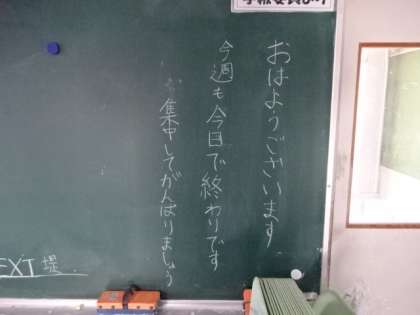 おはようございます
今週も今日で終わりです
集中してがんばりましょう
EXT 堤